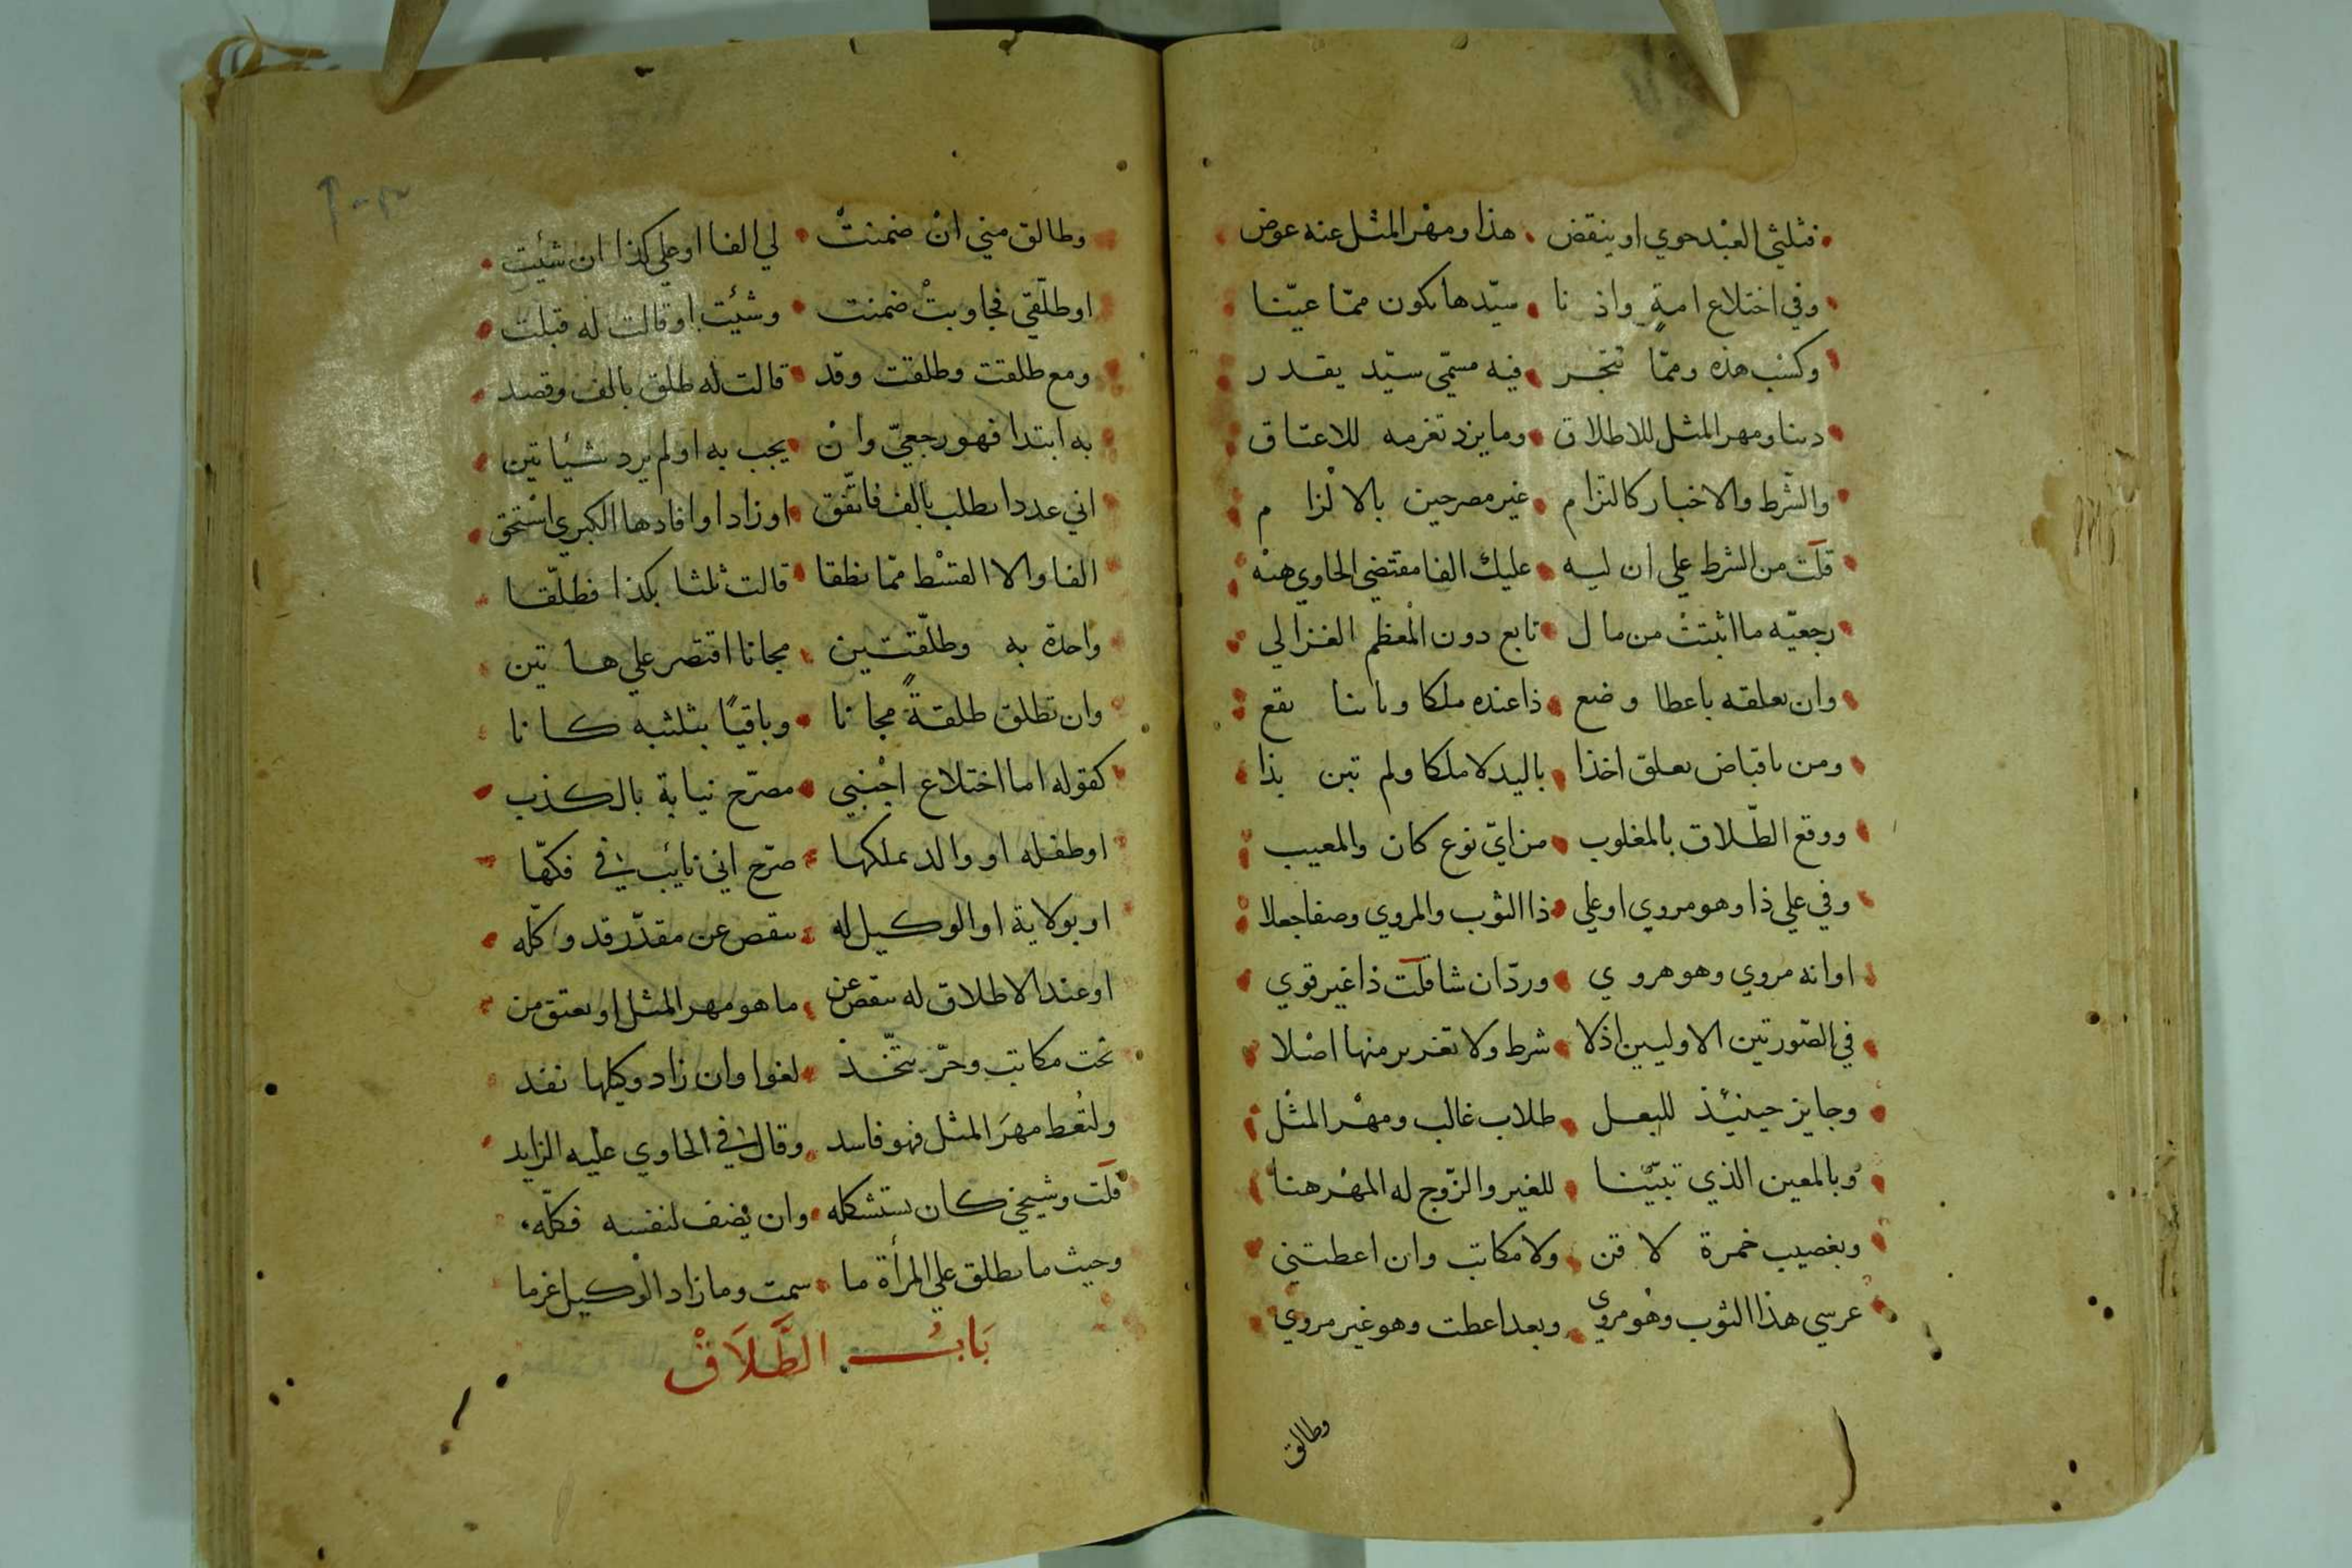 فثلثي العبد حوي او ينقض هذا ومهر المثل عنه عوض
وفي اختلاع امة واذنا سيدها يكون مما عينا
وكسب هذه ومما تتجر فيه مسمي سيد يقدر
دينا ومهر المثل للاطلاق وما يزد تغرمه للاعتاق
والشرط والاخبار كالتزام غير مصرحين بالالزام
قلت من الشرط علي ان ليه عليك الفا مقتضي الحاوي هنه
رجعيه ما اثبتت من مال تابع دون المعظم الغزالي
وان يعلقه باعطا وضع ذا عنده ملكا وباينا يقع
ومن باقباض يعلق اخذا باليد لا ملكا ولم تبن بذا
ووقع الطلاق بالمغلوب من اي نوع كان والمعيب
وفي علي ذا وهو مروي او علي ذا الثوب والمروي وصفا جعلا
او انه مروي وهو هروي ورد ان شا قلت ذا غير قوي
في الصورتين الاوليين اذ لا شرط ولا تغرير منها اصلا
وجايز حينئذ للبعل طلاب غالب ومهر المثل
وبالمعين الذي تبينا للغير والزوج له المهر هنا
وبغصيب خمرة لا قن ولا مكاتب وان اعطتني
عرسي هذا الثوب وهو مروي وبعد اعطت وهو غير مروي
وطالق
وطالق مني ان ضمنت لي الفا او علي كذا ان شئت
او طلقي فجاوبت ضمنت وشئت او قالت له قبلت
ومع طلقت وطلقت وقد قالت له طلق بالف وقصد
به ابتدا فهو رجعي وان يجب به او لم يرد شيئا تبن
اني عددا يطلب بالف فاتفق او زاد او افادها الكبري استحق
الفا والا القسط مما نطقا قالت ثلثا بكذا فطلقا
واحدة به وطلقتين مجانا اقتصر علي هاتين
وان تطلق طلقة مجانا وباقيا بثلثيه كانا
كقوله اما اختلاع اجنبي مصرح نيابة بالكذب
او طفله او والد يملكها صرح اني نائب في فكها
او بولاية او الوكيل له ينقص عن مقدر قد وكله
او عند الاطلاق له ينقص عن ما هو مهر المثل او يعتق من
تحت مكاتب وحر يتخذ لغوا وان زاد وكيلها نفذ
ولتعط مهر المثل فهو فاسد وقال في الحاوي عليه الزايد
قلت وشيخي كان يستشكله وان يضف لنفسه فكله
وحيث ما يطلق علي المرأة ما سمت وما زاد الوكيل غرما
باب الطلاق